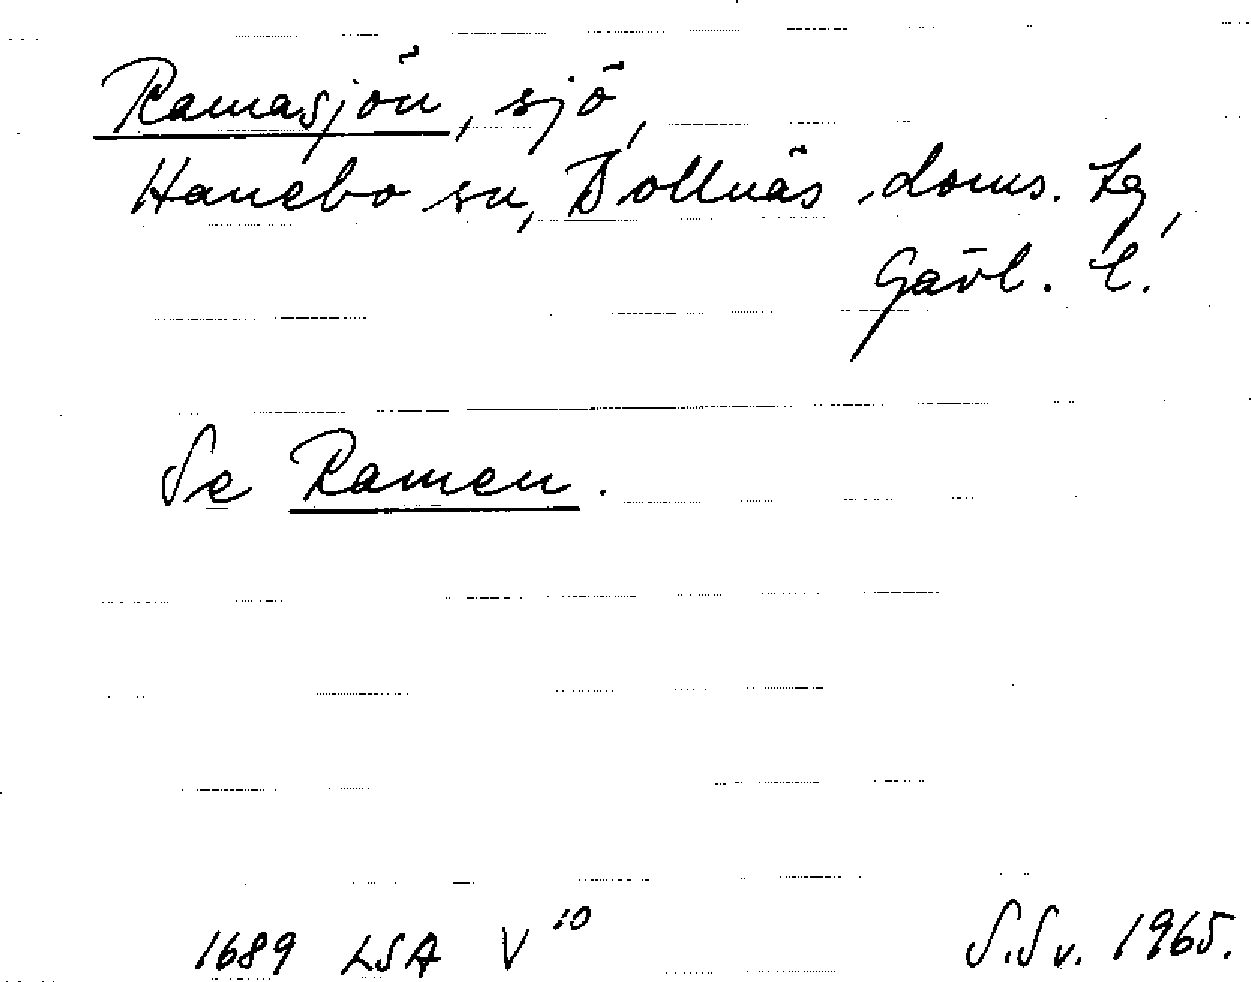 Ramasjön, sjö,
Hanebo sn, Bollnäs doms. Lg,
Gävl. l.
Se Ramen.
1689 LSA V¹⁰ S.Sv. 1965.